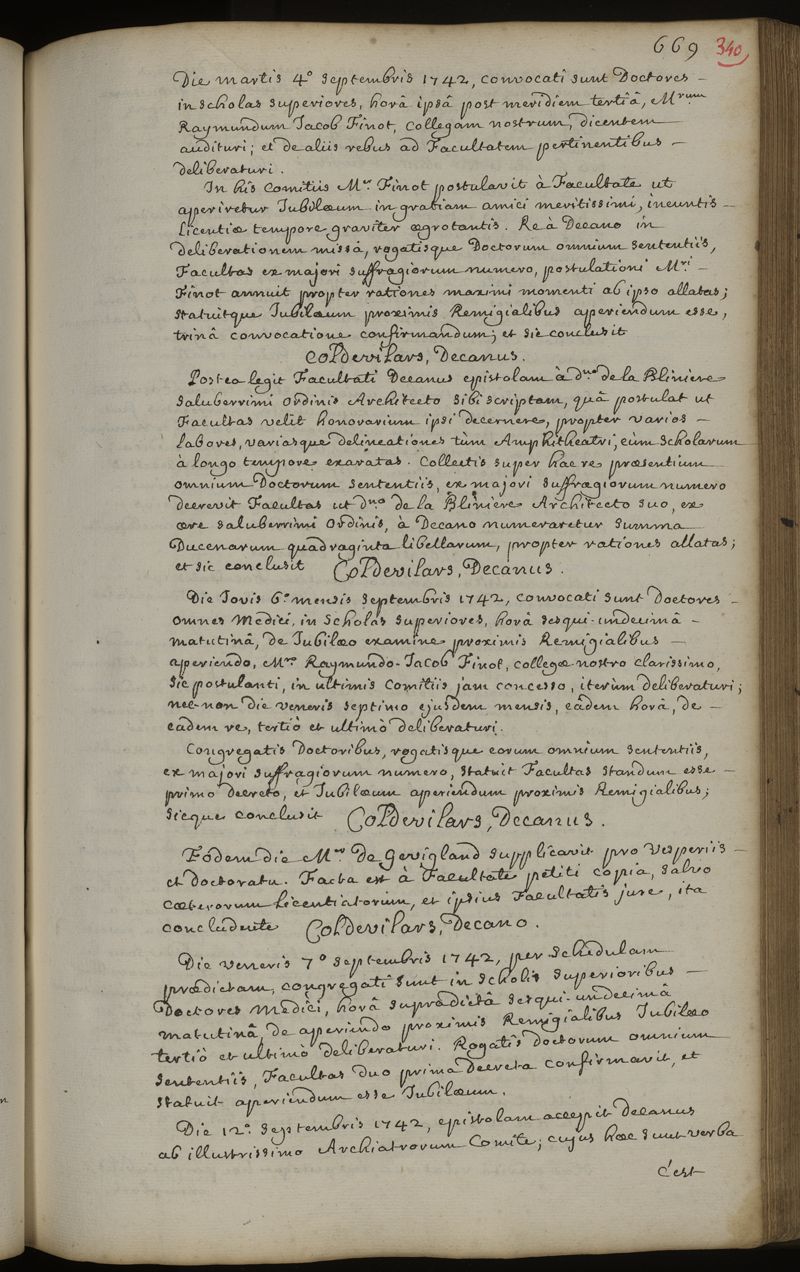 669 340
Die martis 4º Septembris 1742, convocati sunt Doctores –
in scholas superiores, horâ ipsâ post meridiem tertiâ, Mrum
Raymundum Jacob Finot, collegam nostrum, dicentem
audituri; et de aliis rebus ad Facultatem pertinentibus –
deliberaturi.
In his comitiis Mer Finot postulavit à Facultate ut
aperiretur Jubilæum in gratiam amici meritissimi, ineuntis –
Licentiæ tempore graviter ægrotantis. Re à Decano in
deliberationem missâ, rogatisque Doctorum omnium sententiis,
Facultas ex majori suffragiorum numero, postulationi Mri –
Finot annuit propter rationes maximi momenti ab ipso allatas;
statuitque Jubilæum proximis Remigialibus aperiendum esse,
trinâ convocatione confirmandum; et sic conclusit
ColDevilars, Decanus.
Postea legit Facultati Decanus epistolam à dno de la Bliniere
saluberrimi ordinis Architecto sibi scriptam, quâ postulat ut
Facultas velit honorarium ipsi decernere, propter varios –
labores, variasque delineationes tùm Amphitheatri, cùm scholarum
à longo tempore exaratas. Collectis super hac re præsentium
omnium Doctorum sententiis, ex majori suffragiorum numero
decrevit Facultas ut dno de la Bliniere Architecto suo, ex
ære saluberrimi ordinis, à Decano numeraretur summa
Ducenarum quadraginta libellarum, propter rationes allatas;
et sic conclusit ColDevilars, Decanus.
Die Jovis 6º mensis Septembris 1742, convocati sunt Doctores –
omnes Medici, in scholas superiores, horâ sesqui-undecimâ –
matutinâ, de Jubilæo examine proximis Remigialibus –
aperiendo, Mro Raymundo-Jacob Finot, collegæ nostro clarissimo,
sic postulanti, in ultimis comitiis jam concesso, iterùm deliberaturi;
nec-non die veneris septimo ejusdem mensis, eâdem horâ, de –
eadem re, tertiò et ultimò deliberaturi.
Congregatis Doctoribus, rogatisque eorum omnium sententiis,
ex majori suffragiorum numero, statuit Facultas standum esse –
primo decreto, et Jubilæum aperiendum proximis Remigialibus;
sicque conclusit ColDevilars, Decanus.
Eôdem die Mer De Gevigland supplicavit pro vesperiis –
et doctoratu. Facta est à Facultate petiti copia, salvo
cæterorum Licentiatorum, et ipsius Facultatis jure, ita
concludente ColDevilars, Decano.
Die veneris 7º Septembris 1742, per schedulam
prædictam, congregati sunt in scholis superioribus –
Doctores Medici, horâ supradictâ sesqui-undecimâ
matutinâ, de aperiendo proximis Remigialibus Jubilæo
tertiò et ultimò deliberaturi. Rogatis doctorum omnium
sententiis, Facultas duo prima decreta confirmavit, et
statuit aperiendum esse Jubilæum.
Die 12º Septembris 1742, epistolam accepit Decanus
ab illustrissimo Archiatrorum Comite; cujus hæc sunt verba
c'est